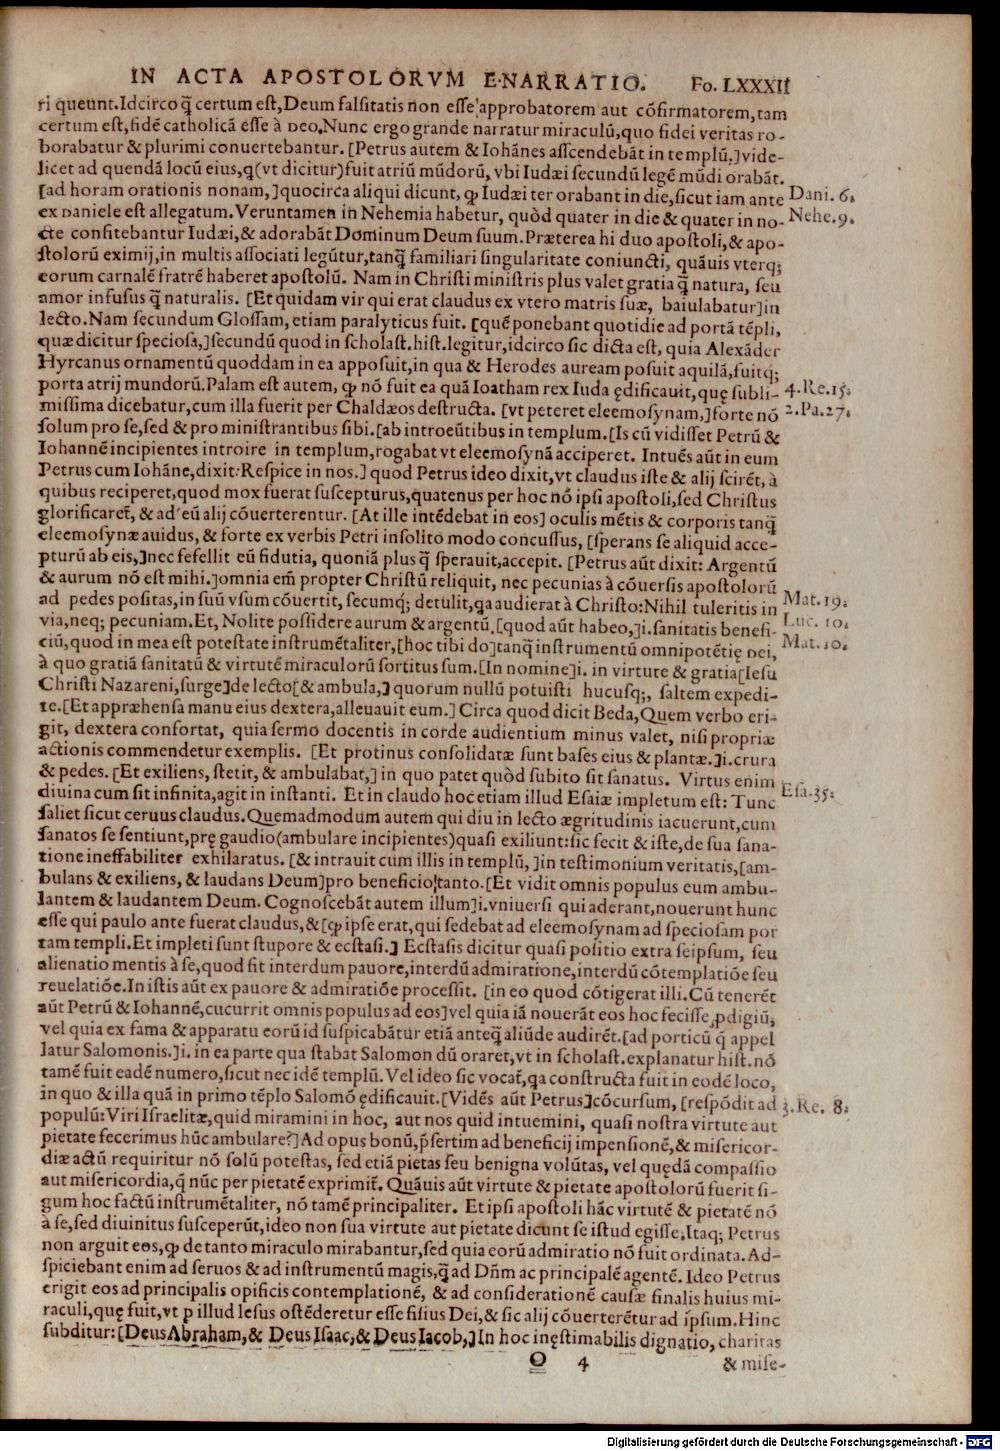 IN ACTA APOSTOLORVM ENARRATIO. Fo. LXXXII
ri queunt. Idcirco q̃ certum est, Deum falsitatis non esse approbatorem aut cõfirmatorem, tam
certum est, fidẽ catholicã esse à Deo. Nunc ergo grande narratur miraculũ, quo fidei veritas ro-
borabatur & plurimi conuertebantur. [Petrus autem & Iohãnes asscendebãt in templũ.] vide-
licet ad quendã locũ eius, q (vt dicitur) fuit atriũ mũdorũ, vbi Iudæi secundũ legẽ mũdi orabãt.
[ad horam orationis nonam,] quocirca aliqui dicunt, ꝙ Iudæi ter orabant in die, sicut iam ante Dani. 6.
ex Daniele est allegatum. Veruntamen in Nehemia habetur, quòd quater in die & quater in no- Nehe. 9.
cte confitebantur Iudæi, & adorabãt Dominum Deum suum. Præterea hi duo apostoli, & apo-
stolorũ eximij, in multis associati legũtur, tanq̃ familiari singularitate coniuncti, quãuis vterq;
eorum carnalẽ fratrẽ haberet apostolũ. Nam in Christi ministris plus valet gratia q̃ natura, seu
amor infusus q̃ naturalis. [Et quidam vir qui erat claudus ex vtero matris suæ, baiulabatur] in
lecto. Nam secundum Glossam, etiam paralyticus fuit. [quẽ ponebant quotidie ad portã tẽpli,
quæ dicitur speciosa,] secundũ quod in scholast. hist. legitur, idcirco sic dicta est, quia Alexãder
Hyrcanus ornamentũ quoddam in ea apposuit, in qua & Herodes auream posuit aquilã, fuitq;
porta atrij mundorũ. Palam est autem, ꝙ nõ fuit ea quã Ioatham rex Iuda ędificauit, quę subli- 4. Re. 15.
missima dicebatur, cum illa fuerit per Chaldæos destructa. [vt peteret eleemosynam,] forte nõ 2. Pa. 27.
solum pro se, sed & pro ministrantibus sibi. [ab introeũtibus in templum. [Is cũ vidisset Petrũ &
Iohannẽ incipientes introire in templum, rogabat vt eleemosynã acciperet. Intuẽs aũt in eum
Petrus cum Iohãne, dixit: Respice in nos.] quod Petrus ideo dixit, vt claudus iste & alij scirẽt, à
quibus reciperet, quod mox fuerat suscepturus, quatenus per hoc nõ ipsi apostoli, sed Christus
glorificaret̃, & ad eũ alij cõuerterentur. [At ille intẽdebat in eos] oculis mẽtis & corporis tanq̃
eleemosynæ auidus, & forte ex verbis Petri insolito modo concussus, [sperans se aliquid acce-
pturũ ab eis,] nec fefellit eũ fidutia, quoniã plus q̃ sperauit, accepit. [Petrus aũt dixit: Argentũ
& aurum nõ est mihi.] omnia em̃ propter Christũ reliquit, nec pecunias à cõuersis apostolorũ
ad pedes positas, in suũ vsum cõuertit, secumq́; detulit, qa audierat à Christo: Nihil tuleritis in Mat. 19.
via, neq; pecuniam. Et, Nolite possidere aurum & argentũ. [quod aũt habeo,] i. sanitatis benefi- Luc. 10.
ciũ, quod in mea est potestate instrumẽtaliter, [hoc tibi do] tanq̃ instrumentũ omnipotẽtię Dei, Mat. 10.
à quo gratiã sanitatũ & virtutẽ miraculorũ sortitus sum. [In nomine] i. in virtute & gratia [Iesu
Christi Nazareni, surge] de lecto [& ambula,] quorum nullũ potuisti hucusq;, saltem expedi-
te. [Et appræhensa manu eius dextera, alleuauit eum.] Circa quod dicit Beda, Quem verbo eri-
git, dextera confortat, quia sermo docentis in corde audientium minus valet, nisi propriæ
actionis commendetur exemplis. [Et protinus consolidatæ sunt bases eius & plantæ.] i. crura
& pedes. [Et exiliens, stetit, & ambulabat,] in quo patet quòd subito sit sanatus. Virtus enim
diuina cum sit infinita, agit in instanti. Et in claudo hoc etiam illud Esaiæ impletum est: Tunc Esa. 35.
saliet sicut ceruus claudus. Quemadmodum autem qui diu in lecto ægritudinis iacuerunt, cum
sanatos se sentiunt, prę gaudio (ambulare incipientes) quasi exiliunt: sic fecit & iste, de sua sana-
tione ineffabiliter exhilaratus. [& intrauit cum illis in templũ,] in testimonium veritatis, [am-
bulans & exiliens, & laudans Deum] pro beneficio tanto. [Et vidit omnis populus eum ambu-
lantem & laudantem Deum. Cognoscebãt autem illum] i. vniuersi qui aderant, nouerunt hunc
esse qui paulo ante fuerat claudus, & [ꝙ ipse erat, qui sedebat ad eleemosynam ad speciosam por
tam templi. Et impleti sunt stupore & ecstasi.] Ecstasis dicitur quasi positio extra seipsum, seu
alienatio mentis à se, quod fit interdum pauore, interdũ admiratione, interdũ cõtemplatiõe seu
reuelatiõe. In istis aũt ex pauore & admiratiõe processit. [in eo quod cõtigerat illi. Cũ tenerẽt
aũt Petrũ & Iohannẽ, cucurrit omnis populus ad eos] vel quia iã nouerãt eos hoc fecisse ꝓdigiũ,
vel quia ex fama & apparatu eorũ id suspicabãtur etiã anteq̃ aliũde audirẽt. [ad porticũ q̃ appel
latur Salomonis.] i. in ea parte qua stabat Salomon dũ oraret, vt in scholast. explanatur hist. nõ
tamẽ fuit eadẽ numero, sicut nec idẽ templũ. Vel ideo sic vocat̃, qa constructa fuit in eodẽ loco,
in quo & illa quã in primo tẽplo Salomõ ędificauit. [Vidẽs aũt Petrus] cõcursum, [respõdit ad 3. Re. 8.
populũ: Viri Israelitæ, quid miramini in hoc, aut nos quid intuemini, quasi nostra virtute aut
pietate fecerimus hũc ambulare?] Ad opus bonũ, p̃sertim ad beneficij impensionẽ, & misericor-
diæ actũ requiritur nõ solũ potestas, sed etiã pietas seu benigna volũtas, vel quędã compassio
aut misericordia, q̃ nũc per pietatẽ exprimit̃. Quãuis aũt virtute & pietate apostolorũ fuerit si-
gum hoc factũ instrumẽtaliter, nõ tamẽ principaliter. Et ipsi apostoli hãc virtutẽ & pietatẽ nõ
à se, sed diuinitus susceperũt, ideo non sua virtute aut pietate dicunt se istud egisse. Itaq; Petrus
non arguit eos, ꝙ de tanto miraculo mirabantur, sed quia eorũ admiratio nõ fuit ordinata. Ad-
spiciebant enim ad seruos & ad instrumentũ magis, q̃ ad Dñm ac principalẽ agentẽ. Ideo Petrus
erigit eos ad principalis opificis contemplationẽ, & ad considerationẽ causæ finalis huius mi-
raculi, quę fuit, vt ꝑ illud Iesus ostẽderetur esse filius Dei, & sic alij cõuerterẽtur ad ipsum. Hinc
subditur: [Deus Abraham, & Deus Isaac, & Deus Iacob,] In hoc inęstimabilis dignatio, charitas
O 4 & mise-
Digitalisierung gefördert durch die Deutsche Forschungsgemeinschaft - DFG